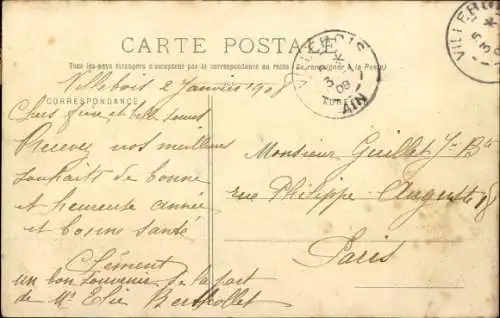 CARTE POSTALE
Tous les pays étrangers n'acceptent pas la correspondance au recto (Se renseigner à la Poste)
VILLEBOIS
3 -1
08
AIN
VILLEBOIS
Villebois 2 Janvier 1908
CORRESPONDANCE
Chers frère et belle soeur
Recevez nos meilleurs
souhaits de bonne
et heureuse année
et bonne santé
Clément
un bon souvenir de la part
de Mr Elie Berthollet
Monsieur Guillet J-Bte
rue Philippe-Auguste 18
Paris